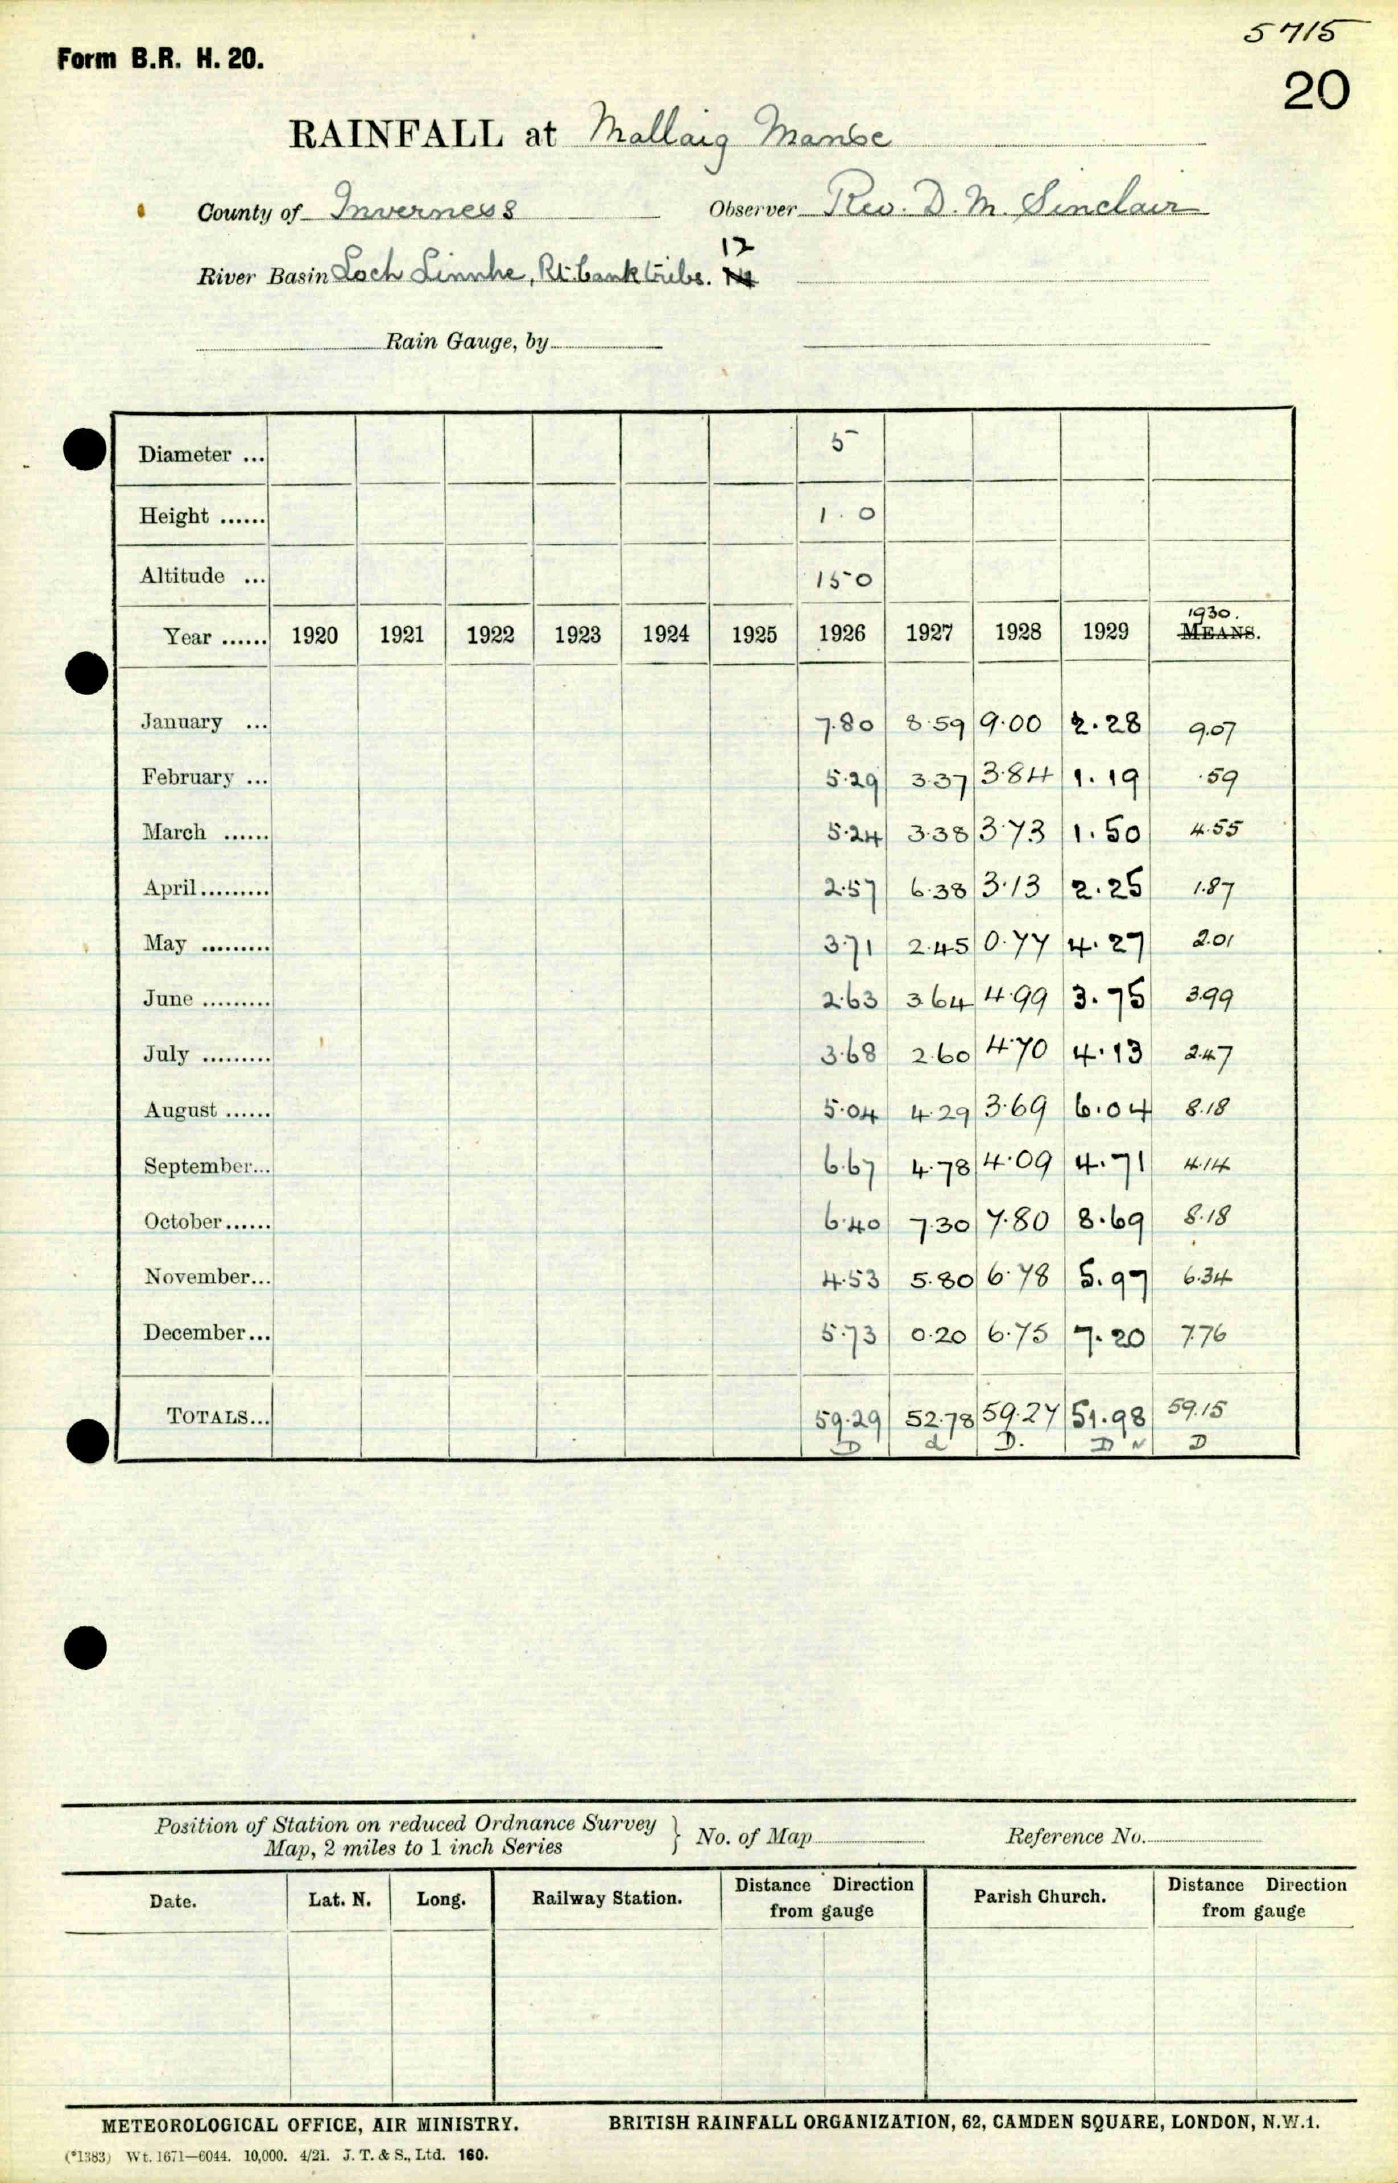 5715
Form B.R. H. 20.
20
RAINFALL at Mallaig Manse
County of Inverness Observer Rev. D. M. Sinclair
12
River Basin Loch Linnhe, Rt. bank tribs. 14
Rain Gauge, by
Diameter ... 5
Height ...... 1 . 0
Altitude ... 150
1930.
Year ...... 1920 1921 1922 1923 1924 1925 1926 1927 1928 1929 MEANS.
January ... 7.80 8.59 9.00 2.28 9.07
February ... 5.29 3.37 3.84 1.19 .59
March ...... 5.24 3.38 3.73 1.50 4.55
April ......... 2.57 6.38 3.13 2.25 1.87
May ......... 3.71 2.45 0.77 4.27 2.01
June ......... 2.63 3.64 4.99 3.75 3.99
July ......... 3.68 2.60 4.70 4.13 2.47
August ...... 5.04 4.29 3.69 6.04 8.18
September... 6.67 4.78 4.09 4.71 4.14
October ...... 6.40 7.30 7.80 8.69 8.18
November... 4.53 5.80 6.78 5.97 6.34
December... 5.73 0.20 6.75 7.20 7.76
TOTALS... 59.29 52.78 59.27 51.98 59.15
D d D. D N D
Position of Station on reduced Ordnance Survey
Map, 2 miles to 1 inch Series } No. of Map Reference No.
Date. Lat. N. Long. Railway Station. Distance Direction from gauge Parish Church. Distance Direction from gauge
METEOROLOGICAL OFFICE, AIR MINISTRY. BRITISH RAINFALL ORGANIZATION, 62, CAMDEN SQUARE, LONDON, N.W.1.
(*1383) Wt. 1671—6044. 10,000. 4/21. J. T. & S., Ltd. 160.